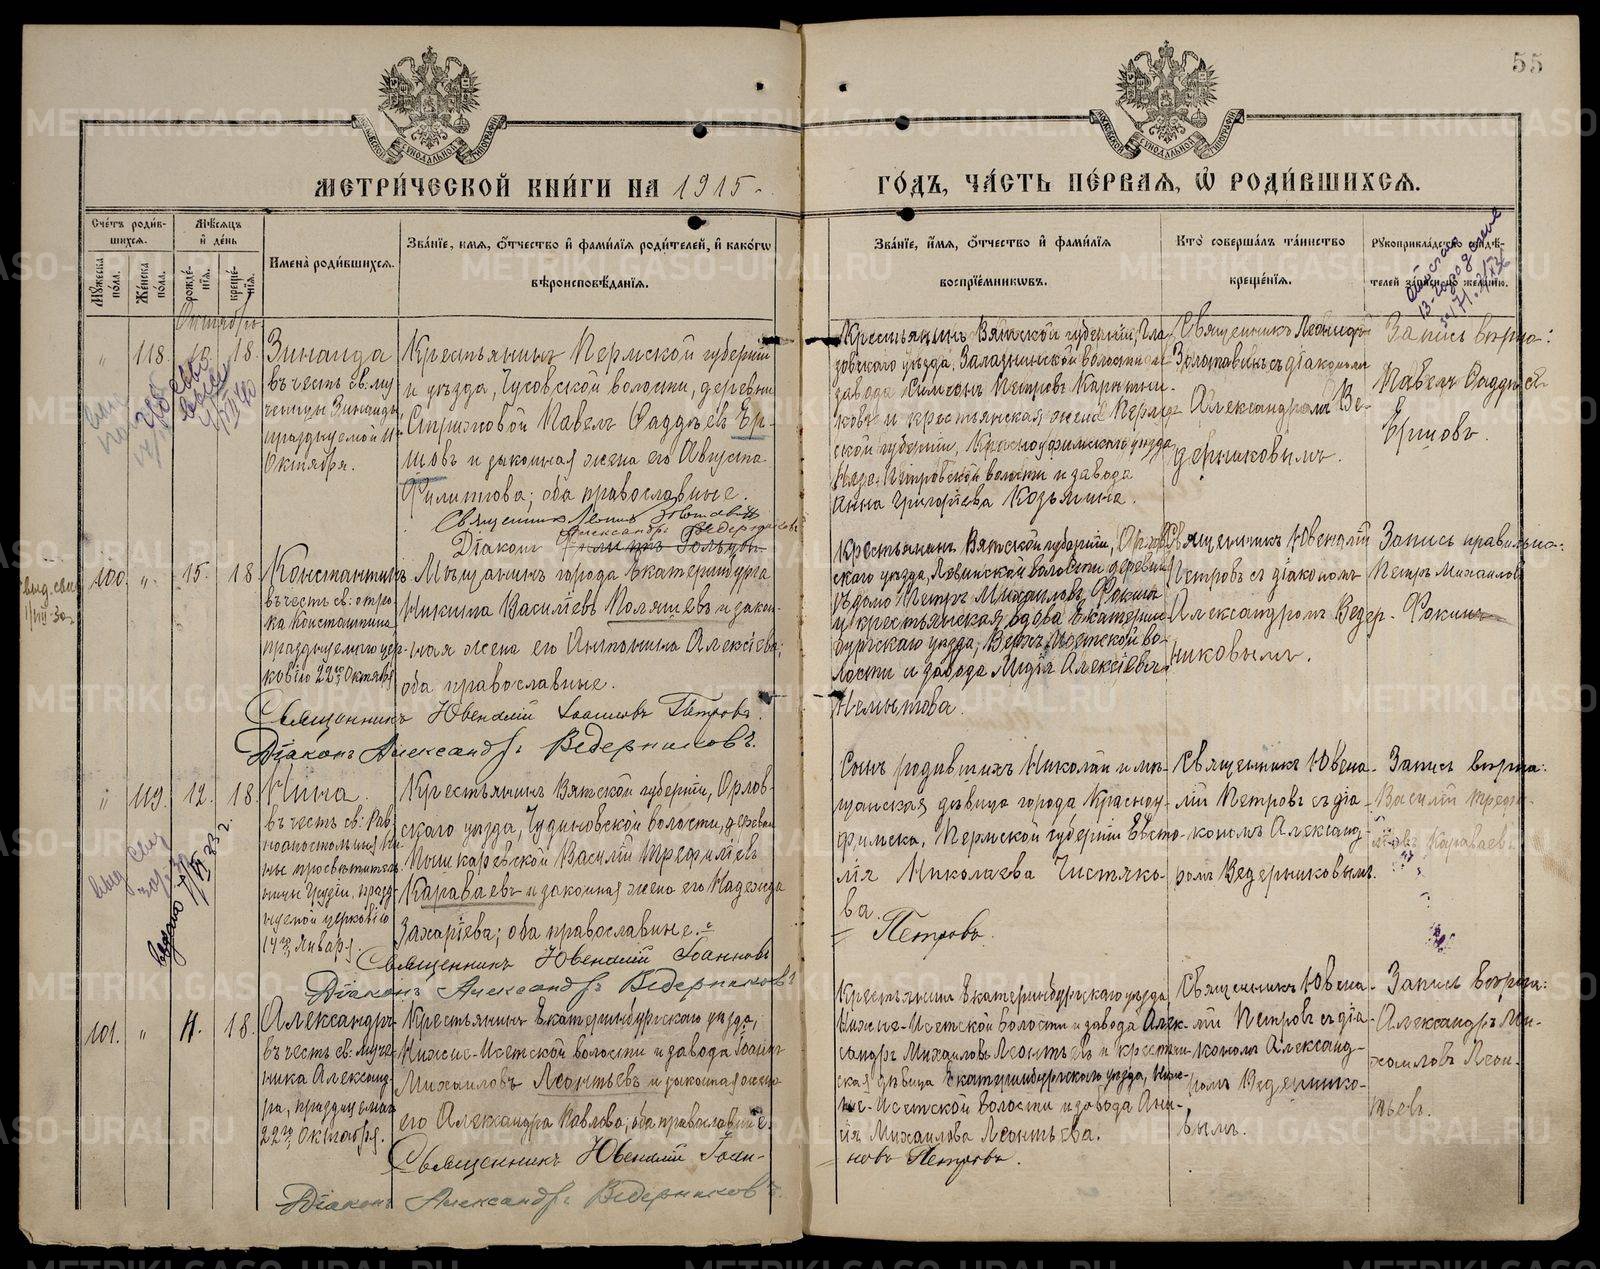 55
МЕТРИ́ЧЕСКОЙ КНИ́ГИ НА 1915
ГО́ДЪ, ЧА́СТЬ ПЕ́РВАЯ, Ѡ҆ РОДИ́ВШИХСЯ.
Сче́тъ роди́в-
шихся.
Мѣ́сяцъ
и҆ де́нь
Мꙋ́жеска
по́ла.
Же́нска
по́ла.
рожде́-
нїя.
креще́-
нїя.
И҆мена̀ роди́вшихся.
Зва́нїе, и҆мя, ѻ҆́тчество и҆ фами́лїя роди́телей, и҆ како́гѡ
вѣроисповѣ́данїя.
Зва́нїе, и҆́мя, ѻ҆́тчество и҆ фами́лїя
воспрїе́мникѡвъ.
Кто̀ соверша́лъ та́инство
креще́нїя.
Рꙋкоприкла́дство свидѣ́-
телей за́писи по жела́нїю.
Октябрь
118. 10. 18.
Зинаида
въ честь св: му-
ченицы Зинаиды,
празднуемой 11
Октября.
Крестьянинъ Пермской губерніи
и уѣзда, Чусовской волости, деревни
Павелъ Фаддѣевъ Ер-
шовъ и законная жена его Августа
Филиппова; оба православные.
Діаконъ
Крестьянинъ Вятской губерніи, Гла-
зовскаго уѣзда, Залазнинской волости и
завода Симеонъ Петровъ
и крестьянская жена Перм-
ской губерніи, Красноуфимскаго уѣзда
Петровской волости и завода
Анна Григорьева Козьмина.
Священникъ Леонидъ
съ діакономъ
Александромъ Ве-
дерниковымъ.
Запись вѣрна:
Павелъ Фаддѣев
Ершовъ.
100. " 15. 18
Константинъ
въ честь св: отро-
ка Константина
празднуемаго цер-
ковію 22го Октября
Мѣщанинъ города Екатеринбурга
Никита Василіевъ и закон-
ная жена его Антонина Алексіева;
оба православные.
Священникъ Ювеналій Іоанновъ Петровъ.
Діаконъ Александръ Ведерниковъ.
Крестьянинъ Вятской губерніи, Орлов-
скаго уѣзда, волости деревни
Петръ Михаиловъ Фокинъ
и крестьянская вдова Екатерин-
бургскаго уѣзда, Верхъ-Исетской во-
лости и завода Лидія Алексіева
Немытова.
Священникъ Ювеналій
Петровъ съ діакономъ
Александромъ Ведер-
никовымъ.
Запись правильна:
Петръ Михаиловъ
Фокинъ
" 119. 12. 18.
Нина
въ честь св: Рав-
ноапостольныя Ни-
ны просвѣтитель-
ницы Грузіи, празд-
нуемой церковію
14го Января.
Крестьянинъ Вятской губерніи, Орлов-
скаго уѣзда, Чудиновской волости, деревни
Пошкаревской Василій Трефиліевъ
Караваевъ и законная жена его Надежда
Захаріева; оба православные.
Священникъ Ювеналій Іоанновъ
Діаконъ Александръ Ведерниковъ
Сынъ родившихъ Николай и мѣ-
щанская дѣвица города Красноу-
фимска, Пермской губерніи Евсто-
лія Николаева Чистяко-
ва.
Петровъ.
Священникъ Ювена-
лій Петровъ съ діа-
кономъ Александ-
ромъ Ведерниковымъ.
Запись вѣрна:
Василій Трефи-
ловъ Караваевъ
101. " 11. 18.
Александръ
въ честь св: муче-
ника Александ-
ра, празднуемаго
22го Октября.
Крестьянинъ Екатеринбургскаго уѣзда,
Нижне-Исетской волости и завода Іоаннъ
Михаиловъ Леонтьевъ и законная жена
его Александра Павлова; оба православные.
Священникъ Ювеналій Іоан-
Діаконъ Александръ Ведерниковъ.
Крестьянинъ Екатеринбургскаго уѣзда
Нижне-Исетской волости и завода Алек-
сандръ Михаиловъ Леонтьевъ и крестьян-
ская дѣвица Екатеринбургскаго уѣзда, Ниж-
не-Исетской волости и завода Анн-
ія Михаилова Леонтьева.
новъ Петровъ.
Священникъ Ювена-
лій Петровъ съ діа-
кономъ Александ-
ромъ Ведернико-
вымъ.
Запись вѣрна:
Александръ Ми-
хаиловъ Леон-
тьевъ.
METRIKI.GASO-URAL.RU